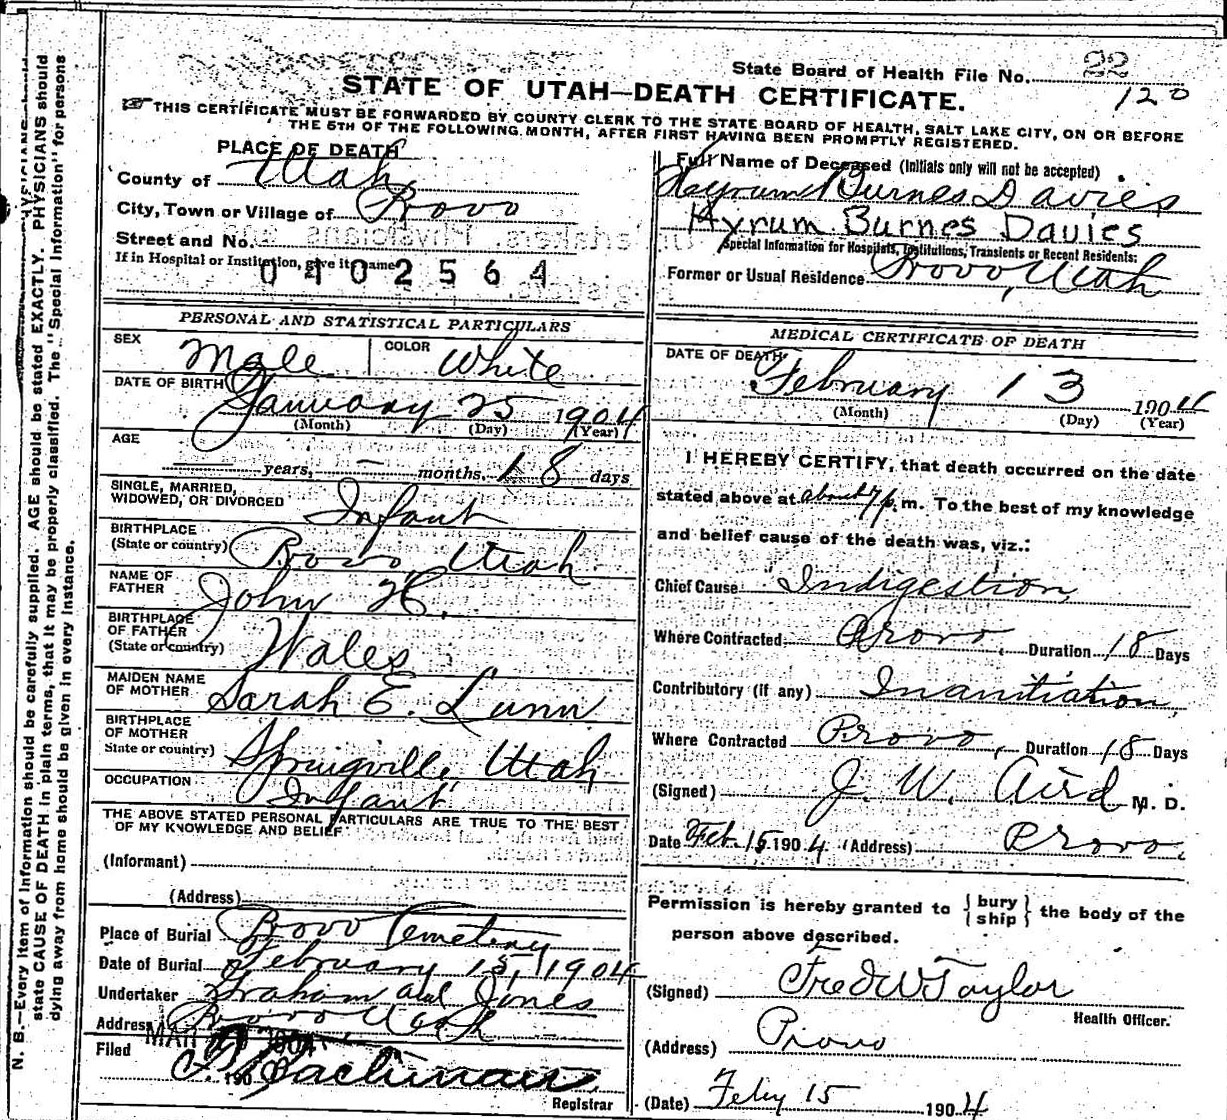 State Board of Health File No. 22
120
STATE OF UTAH—DEATH CERTIFICATE.
THIS CERTIFICATE MUST BE FORWARDED BY COUNTY CLERK TO THE STATE BOARD OF HEALTH, SALT LAKE CITY, ON OR BEFORE
THE 5TH OF THE FOLLOWING MONTH, AFTER FIRST HAVING BEEN PROMPTLY REGISTERED.
PLACE OF DEATH
County of Utah
City, Town or Village of Provo
Street and No.
If in Hospital or Institution, give its name
0402564
Full Name of Deceased (Initials only will not be accepted)
Hyrum Burnes Davies
Hyrum Burnes Davies
Special Information for Hospitals, Institutions, Transients or Recent Residents:
Former or Usual Residence Provo, Utah
PERSONAL AND STATISTICAL PARTICULARS
SEX Male COLOR White
DATE OF BIRTH
January 25 1904
(Month) (Day) (Year)
AGE
— years, — months, 18 days
SINGLE, MARRIED,
WIDOWED, OR DIVORCED Infant
BIRTHPLACE
(State or country) Provo, Utah
NAME OF
FATHER John H.
BIRTHPLACE
OF FATHER
(State or country) Wales
MAIDEN NAME
OF MOTHER Sarah E. Lunn
BIRTHPLACE
OF MOTHER
State or country) Springville, Utah
OCCUPATION Infant
THE ABOVE STATED PERSONAL PARTICULARS ARE TRUE TO THE BEST
OF MY KNOWLEDGE AND BELIEF
(Informant)
(Address)
Place of Burial Provo Cemetery
Date of Burial February 15, 1904
Undertaker Graham and Jones
Address Provo Utah
Filed MAR 1904
190
Registrar
MEDICAL CERTIFICATE OF DEATH
DATE OF DEATH
February 13 1904
(Month) (Day) (Year)
I HEREBY CERTIFY, that death occurred on the date
stated above at about 7 p. m. To the best of my knowledge
and belief cause of the death was, viz.:
Chief Cause Indigestion
Where Contracted Provo, Duration 18 Days
Contributory (if any) Inanitiation
Where Contracted Provo, Duration 18 Days
(Signed) J. W. Aird M. D.
Date Feb. 15 1904 (Address) Provo.
Permission is hereby granted to {bury
ship} the body of the
person above described.
(Signed) Fred W Taylor
Health Officer.
(Address) Provo
(Date) Feby 15 1904
N. B.—Every item of information should be carefully supplied. AGE should be stated EXACTLY. PHYSICIANS should
state CAUSE OF DEATH in plain terms, that it may be properly classified. The "Special Information" for persons
dying away from home should be given in every instance.